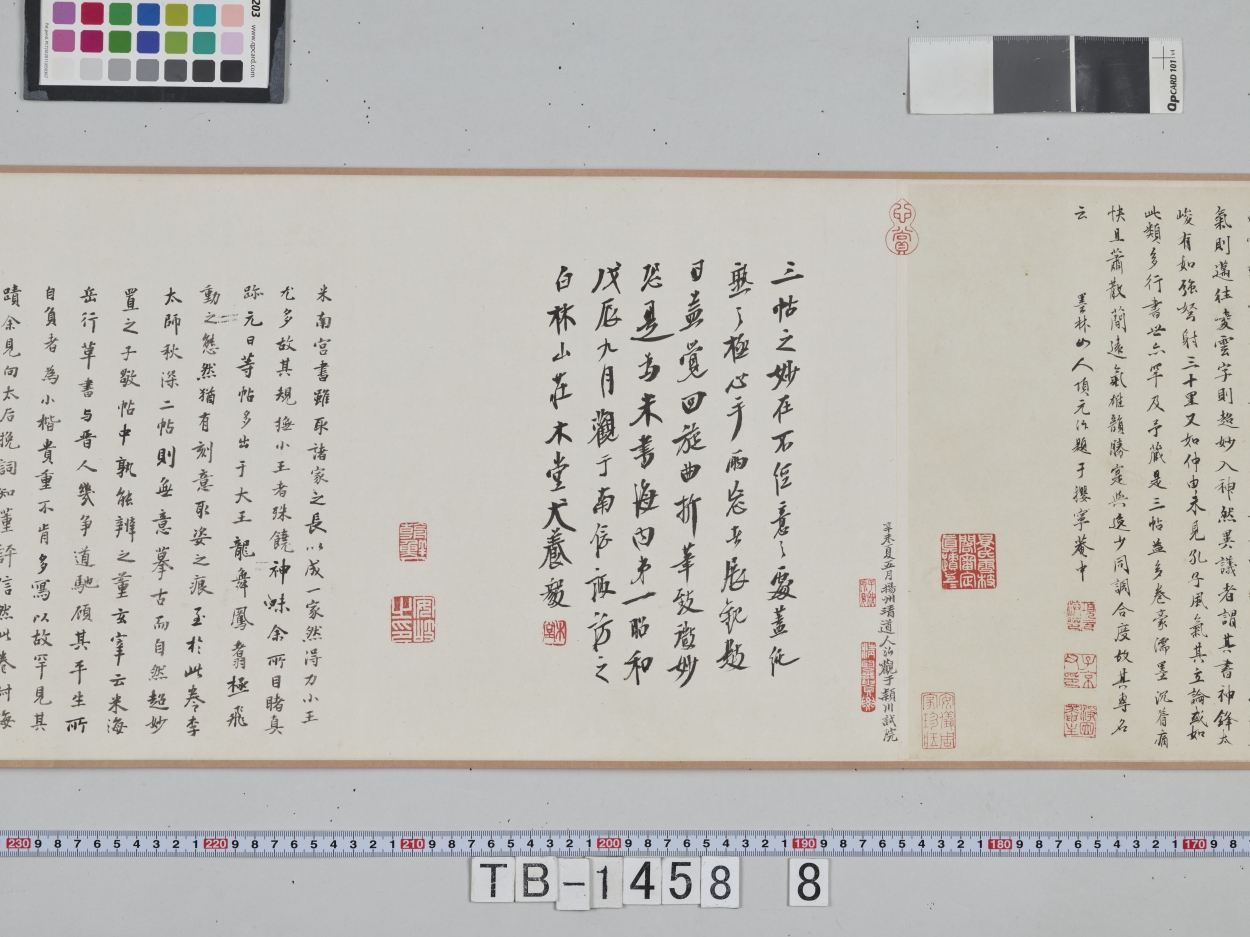 氣則邁往凌雲字則超妙入神然異議者謂其書神鋒太
峻有如強弩射三十里又如仲由未見孔子風氣其立論或如
此類多行書世亦罕及予藏是三帖益多卷豪濡墨沉着痛
快且蕭散簡遠氣雄韻勝寔與逸少同調合度故其專名
云
墨林山人項元汴題于攖寧菴中
辛卷夏五月揚州靖道人治觀于潁川試院
三帖之妙在不经意之處蓋從
熟之極心手兩忘去展観数
日益覺回旋曲折筆致微妙
恐是為米書海内弟一昭和
戊辰九月觀于南信諏訪之
白林山荘木堂犬養毅
米南宮書雖取諸家之長以成一家然得力小王
尤多故其規撫小王者殊饒神味余所目睹真
跡元日等帖多出于大王龍舞鳳翥極飛
動之態然猶有刻意取姿之痕至於此卷李
太師秋深二帖則無意摹古而自然超妙
置之子敬帖中孰能辨之董玄宰云米海
岳行草書与晋人幾争道馳顧其平生所
自負者為小楷貴重不肯多寫以故罕見其
蹟余見向太后挽詞知董評信然此卷
203
www.qpcard.com
QpCARD 101 v4
230 9 8 7 6 5 4 3 2 1 220 9 8 7 6 5 4 3 2 1 210 9 8 7 6 5 4 3 2 1 200 9 8 7 6 5 4 3 2 1 190 9 8 7 6 5 4 3 2 1 180 9 8 7 6 5 4 3 2 1 170 9 8
TB-1458 8